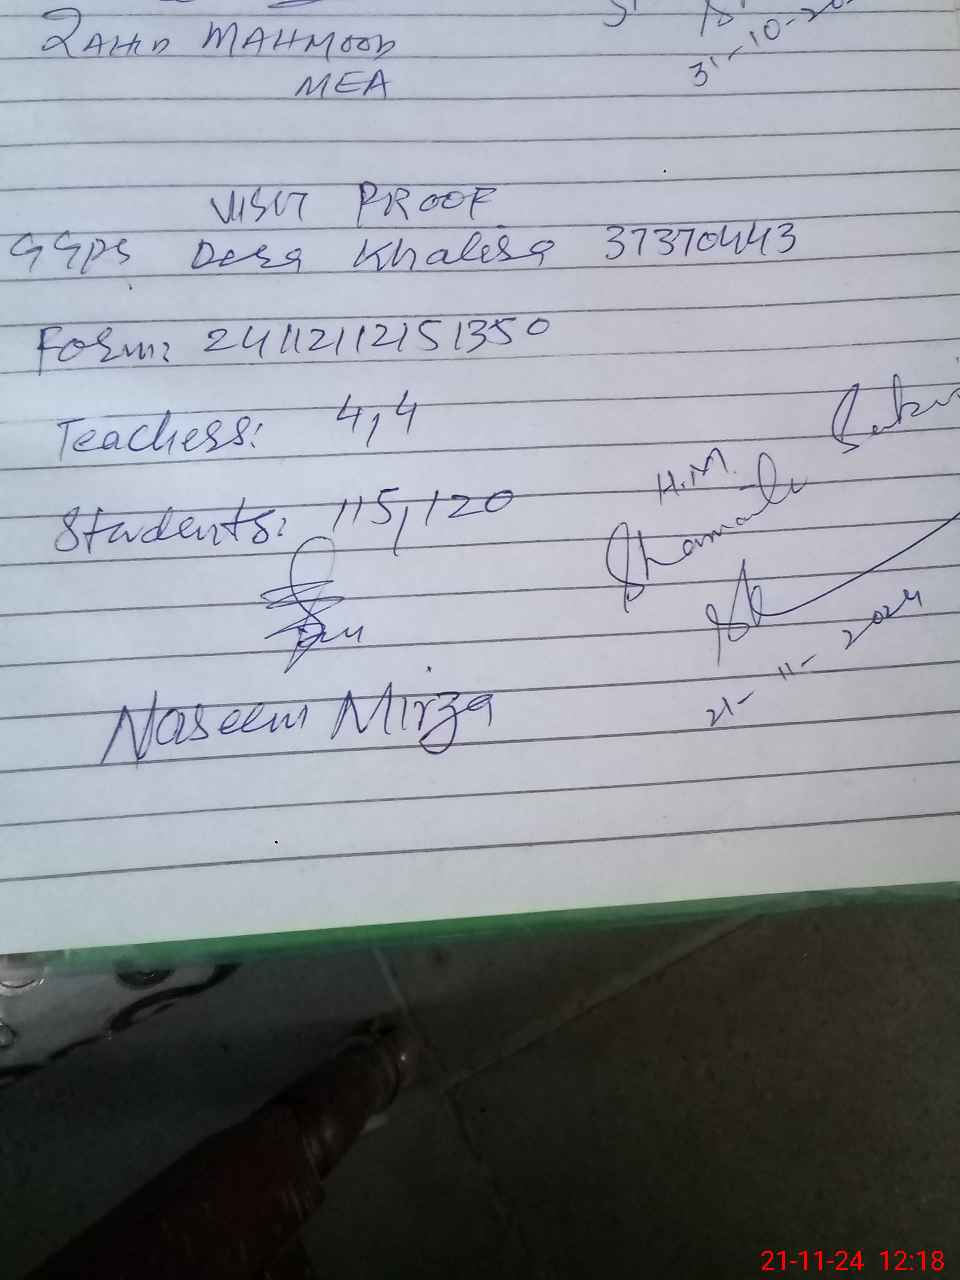 ZAHID MAHMOOD
MEA
31-10-20
VISIT PROOF
GGPS Dera Khalisa 37370443
Form: 24112112151350
Teachers: 4,4
Students: 115,120
H.M.
Naseem Mirza
21-11-2024
21-11-24 12:18